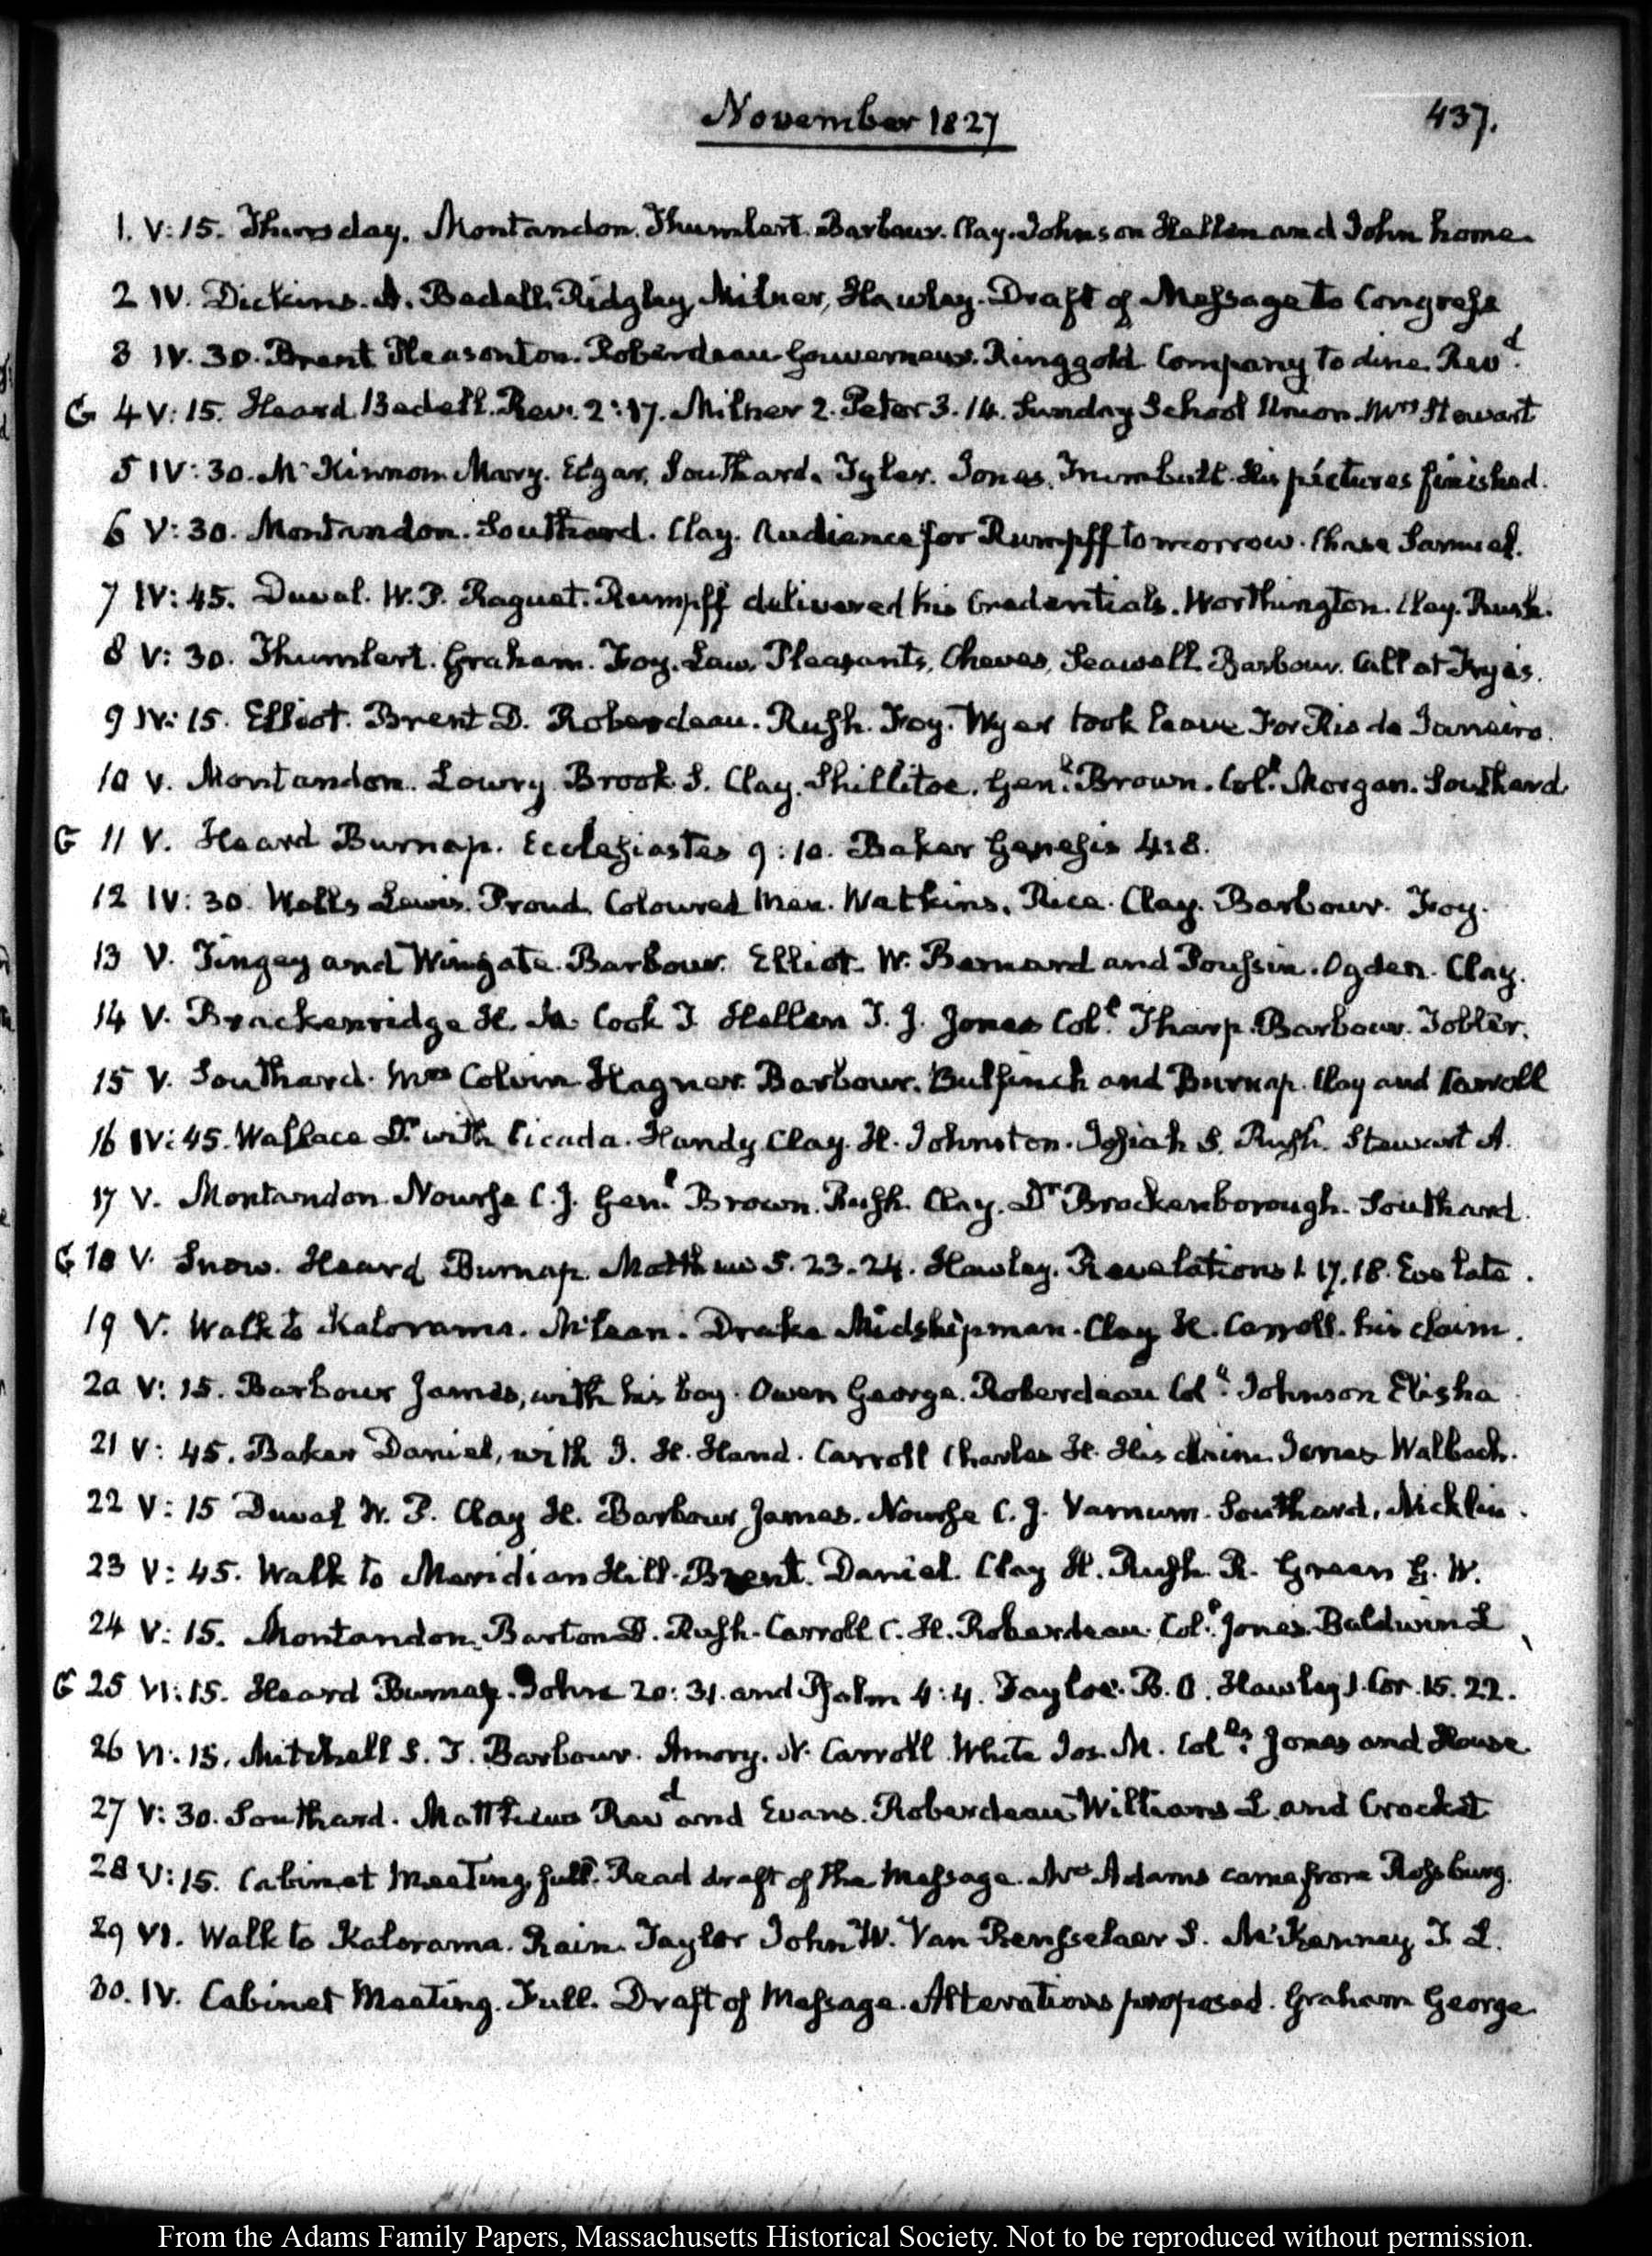 November 1827
437.
1. V:15. Thursday. Montandon. Thumlert. Barbour. Clay. Johnson Hellen and John home.
2 IV. Dickins. A. Bedell. Ridgley, Milnor, Hawley. Draft of Message to Congress
3 IV. 30. Brent Pleasonton. Roberdeau Gouverneur. Ringgold. Company to dine. Revd.
G 4 V:15. Heard Bedell. Rev. 2:17. Milnor 2. Peter 3. 14. Sunday School Union. Mrs Stewart
5 IV:30. McKinnom Mary. Edgar, Southard. Tyler. Jones. Trumbull. His pictures finished.
6 V:30. Montandon. Southard. Clay. Audience for Rumpff tomorrow. Chase Samuel.
7 IV:45. Duval. W. P. Raguet. Rumpff delivered his Credentials. Worthington. Clay. Rush.
8 V:30. Thumlert. Graham. Foy. Law, Pleasants, Cheves, Seawell. Barbour. Call at Frye's.
9 IV:15. Elliot. Brent D. Roberdeau. Rush. Foy. Wyer took leave For Rio de Janeiro.
10 V. Montandon. Lowry. Brook S. Clay. Shillitoe. Genl. Brown. Coll. Morgan. Southard
G 11 V. Heard Burnap. Ecclesiastes 9:10. Baker Genesis 4:8.
12 IV:30. Wells Lewis. Proud. Coloured Man. Watkins. Rice. Clay. Barbour. Foy.
13 V. Tingey and Wingate. Barbour. Elliot. W. Bernard and Poussin. Ogden. Clay.
14 V. Brackenridge H. M. Cook J. Hellen T. J. Jones Coll. Tharp. Barbour. Tobler.
15 V. Southard. Mrs Colvin Hagner. Barbour. Bulfinch and Burnap. Clay and Carroll
16 IV:45. Wallace Dr with Cicada. Handy. Clay. H. Johnston. Josiah S. Rush. Stewart A.
17 V. Montandon. Nourse C. J. Genl. Brown. Rush. Clay. Dr Brockenborough. Southard.
G 18 V. Snow. Heard Burnap. Matthew 5. 23. 24. Hawley. Revelations 1. 17. 18. Eve late.
19 V. Walk to Kalorama. McLean. Drake Midshipman. Clay H. Carroll. his claim.
20 V:15. Barbour James, with his boy. Owen George. Roberdeau Coll. Johnson Elisha
21 V:45. Baker Daniel, with J. H. Hand. Carroll Charles H. His claim. Jones Walbach.
22 V:15 Duval W. P. Clay H. Barbour James. Nourse C. J. Varnum. Southard, Nicklin.
23 V:45. Walk to Meridian Hill. Brent. Daniel. Clay H. Rush. R. Green G. W.
24 V:15. Montandon. Barton D. Rush. Carroll C. H. Roberdeau. Coll. Jones. Baldwin L
G 25 VI:15. Heard Burnap. John 20:31. and Psalm 4:4. Tayloe. B. O. Hawley 1. Cor. 15. 22.
26 VI:15. Mitchell S. T. Barbour. Amory. N. Carroll White Jos. M. Colls. Jones and House.
27 V:30. Southard. Matthews Revd and Evans. Roberdeau Williams L. and Crockett
28 V:15. Cabinet Meeting, full. Read draft of the Message. Mrs Adams came from Rossburg.
29 VI. Walk to Kalorama. Rain. Taylor John W. Van Rensselaer S. McKenney T. L.
30. IV. Cabinet Meeting. Full. Draft of Message. Alterations proposed. Graham George
From the Adams Family Papers, Massachusetts Historical Society. Not to be reproduced without permission.